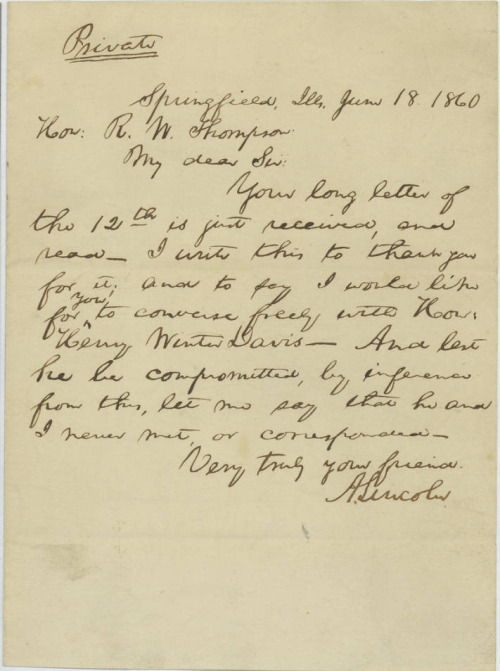 Private
Springfield, Ills, June 18. 1860
Hon: R. W. Thompson:
My dear Sir:
Your long letter of
the 12th is just received, and
read— I write this to thank you
for it; and to say I would like
for you to converse freely with Hon:
Henry Winter Davis— And lest
he be compromitted, by inference
from this, let me say that he and
I never met, or corresponded—
Very truly your friend.
A. Lincoln